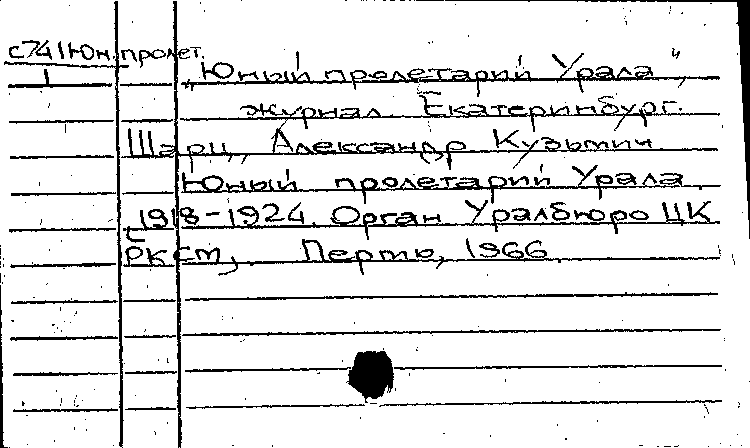 с741Юн.пролет.
1
„Юный пролетарий Урала",
журнал. Екатеринбург.
Шарц, Александр Кузьмич.
Юный пролетарий Урала.
1918-1924. Орган Уралбюро ЦК
РКСМ, Пермь, 1966.